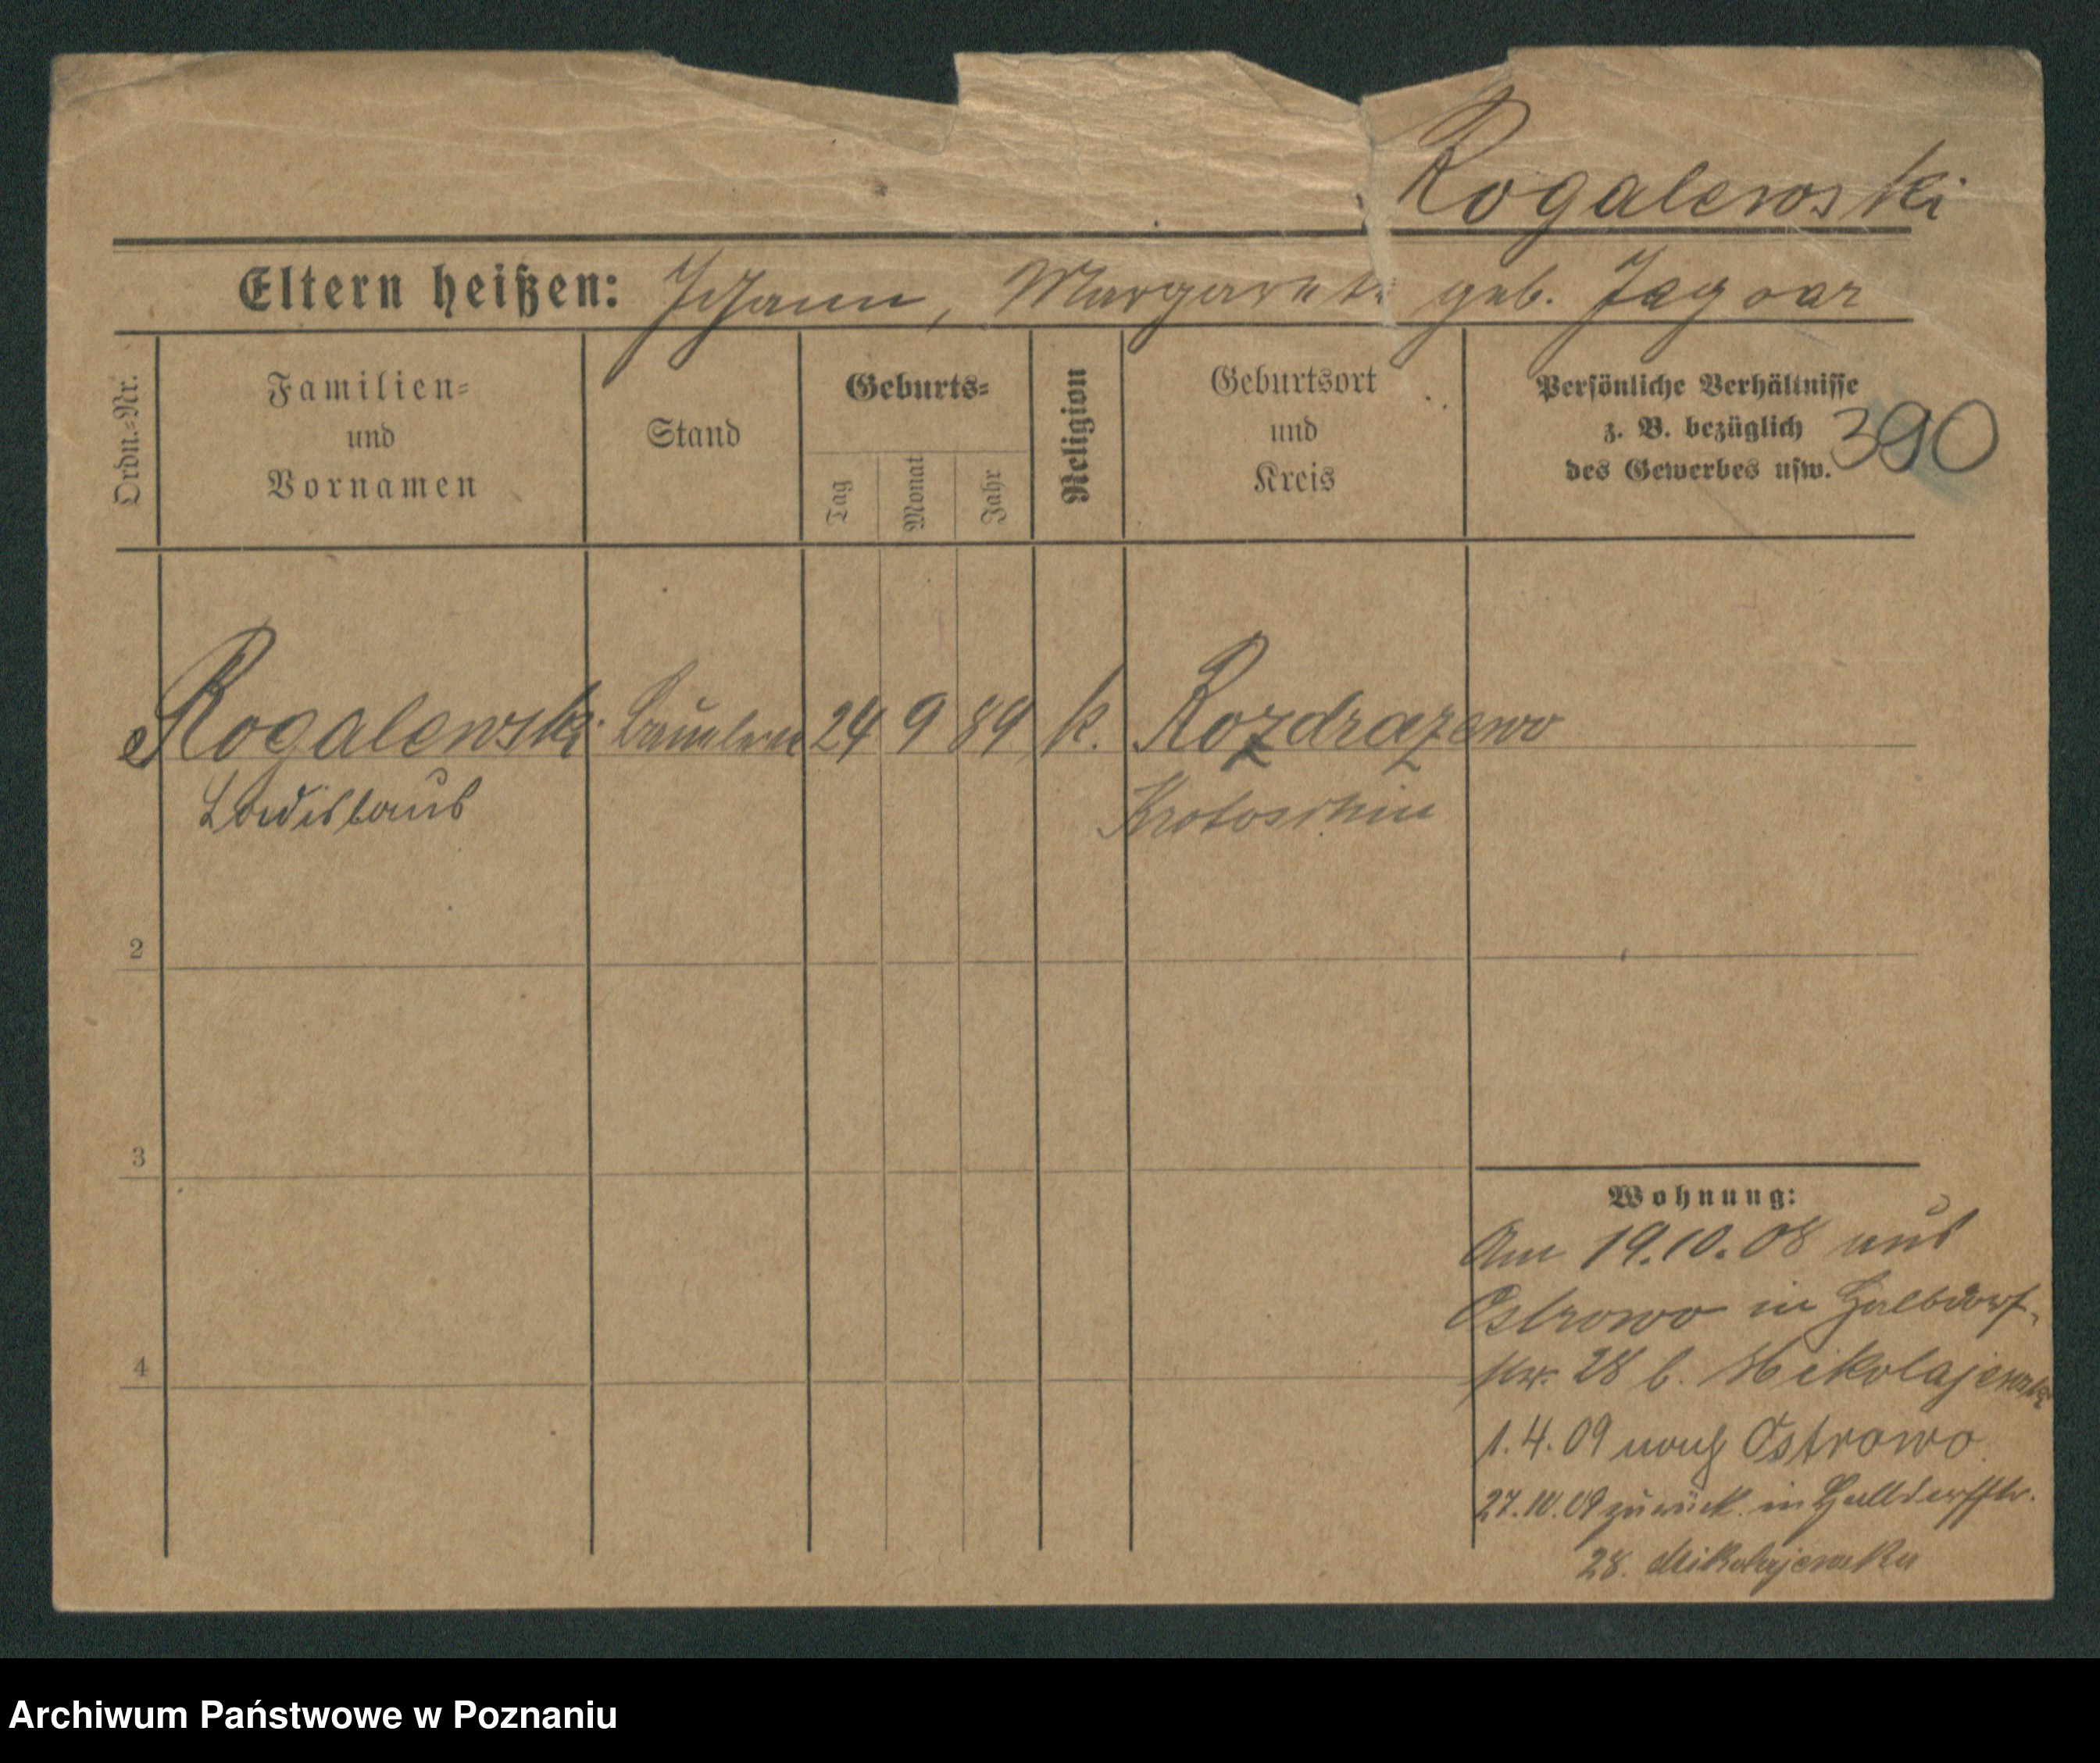 Rogalewski
Eltern heißen: Johann, Margarete geb. Jagoar
Ordn.-Nr.
Familien-
und
Vornamen
Stand
Geburts-
Tag
Monat
Jahr
Religion
Geburtsort
und
Kreis
Persönliche Verhältnisse
z. B. bezüglich
des Gewerbes usw.
390
Rogalewski 24 9 89 k. Rozdrazewo
Ladislaus Krotoschin
2
3
4
Wohnung:
Am 19.10.08 aus
Ostrowo in Halbdorf-
str. 28 b. Mikolajewski
1.4.09 nach Ostrowo.
27.10.09 zurück in Halbdorfstr.
28. Mikolajewski
Archiwum Państwowe w Poznaniu